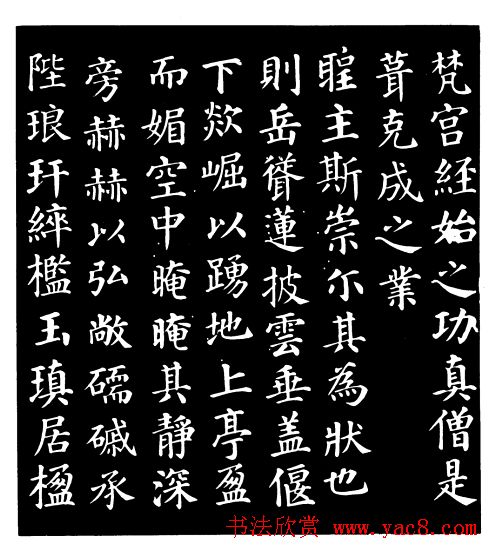 梵宫經始之功真僧是
葺克成之業
聖主斯崇尓其為狀也
則岳聳蓮披雲垂盖偃
下欻崛以踴地上亭盈
而媚空中晻晻其靜深
旁赫赫以弘敞礝磩承
陛琅玕綷檻玉瑱居楹
书法欣赏 www.yac8.com